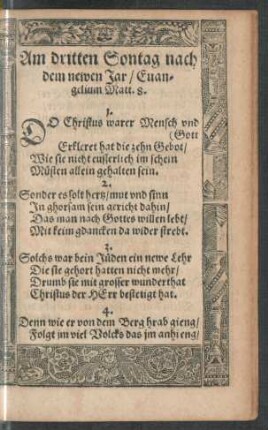 Am dritten Sontag nach
dem newen Jar / Euan-
gelium Matt. 8.
1.
DO Christus warer Mensch vnd
(Gott
Erkleret hat die zehn Gebot /
Wie sie nicht eusserlich im schein
Müsten allein gehalten sein.
2.
Sonder es solt hertz / mut vnd sinn
In ghorsam sein gericht dahin /
Das man nach Gottes willen lebt /
Mit keim gdancken da wider strebt.
3.
Solchs war bein Jüden ein newe Lehr
Die sie gehort hatten nicht mehr /
Drumb sie mit grosser wunderthat
Christus der HErr bestetigt hat.
4.
Denn wie er von dem Berg hrab gieng /
Folgt jm viel Volcks das jm anhieng /